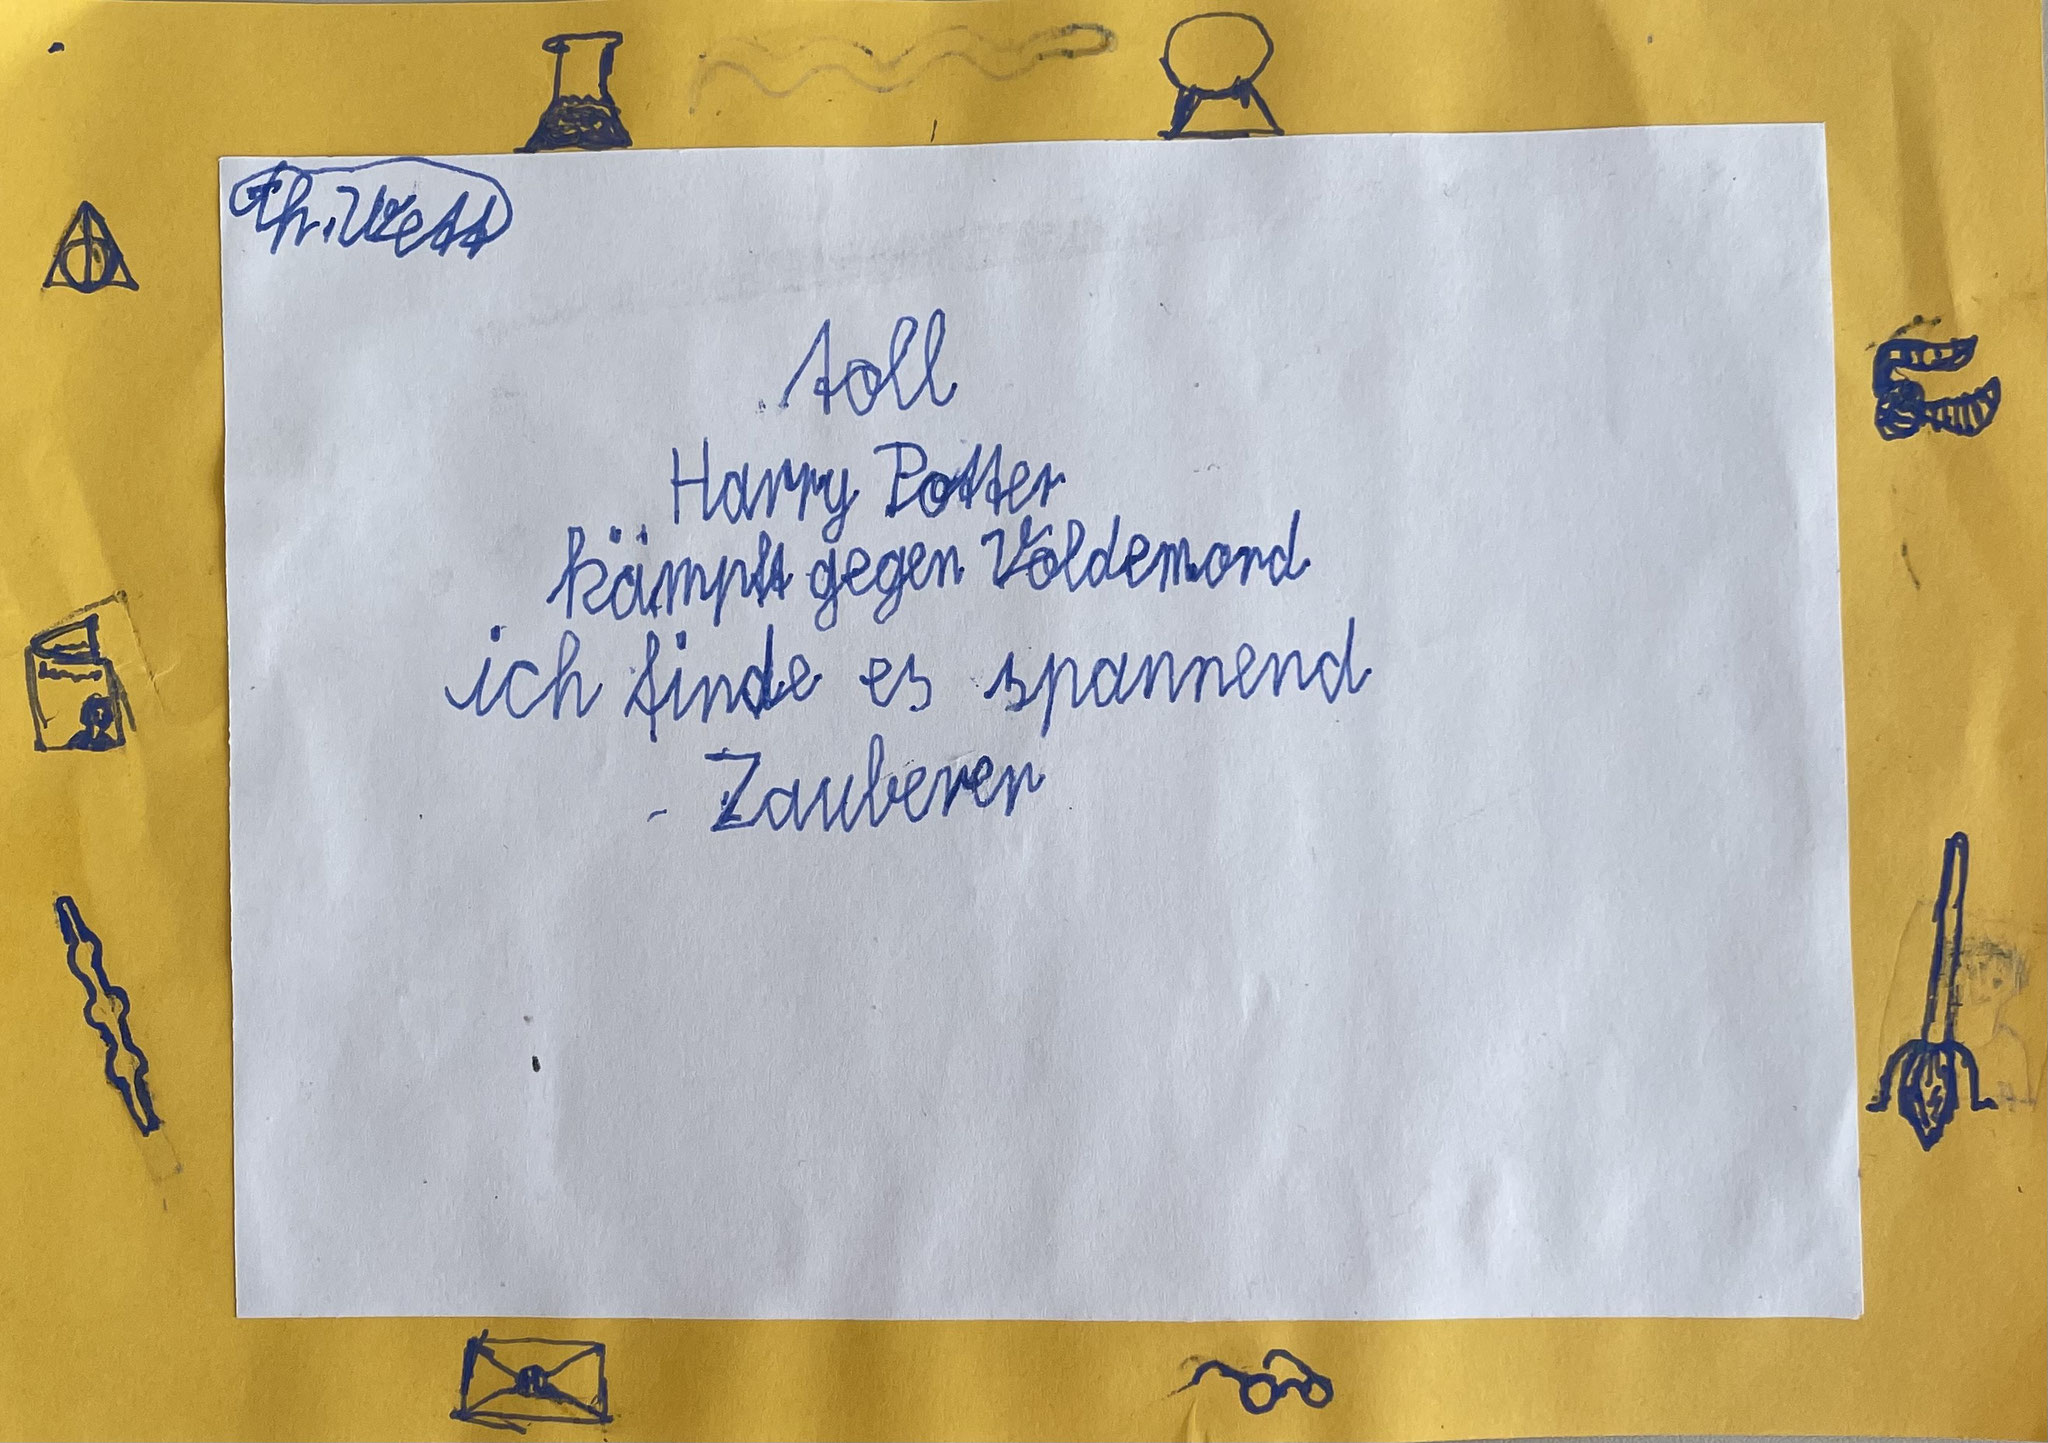 toll
Harry Potter
kämpft gegen Voldemord
ich finde es spannend
Zauberer